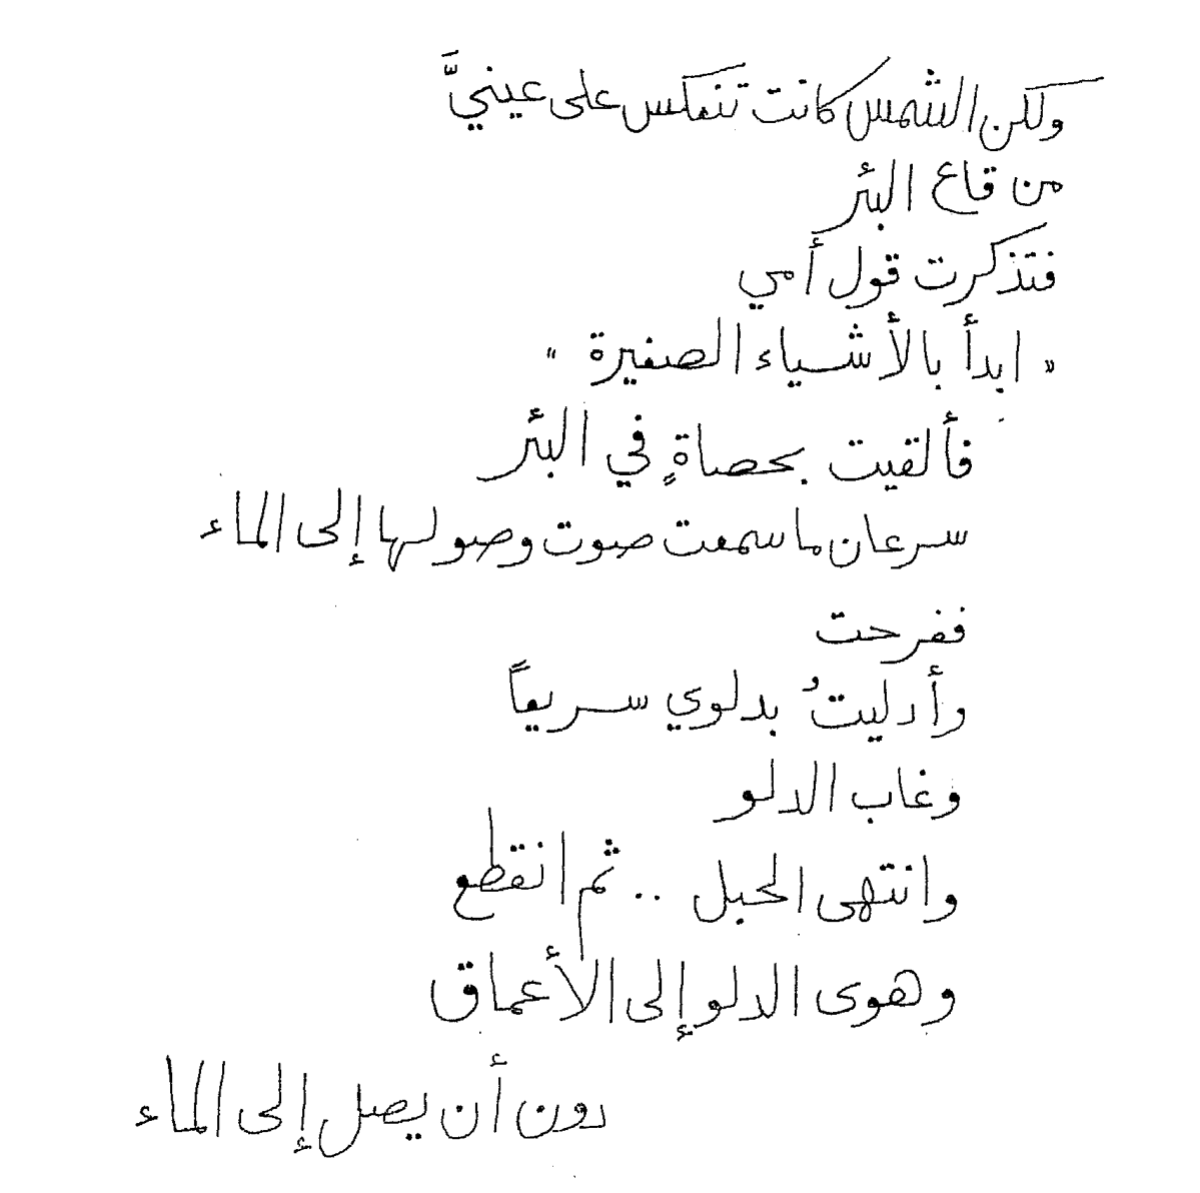 ولكن الشمس كانت تنعكس على عينيَّ
من قاع البئر
فتذكرت قول أمي
" ابدأ بالأشياء الصغيرة "
فألقيت بحصاةٍ في البئر
سرعان ما سمعت صوت وصولها إلى الماء
ففرحت
وأدليتُ بدلوي سريعاً
وغاب الدلو
وانتهى الحبل .. ثم انقطع
وهوى الدلو إلى الأعماق
دون أن يصل إلى الماء